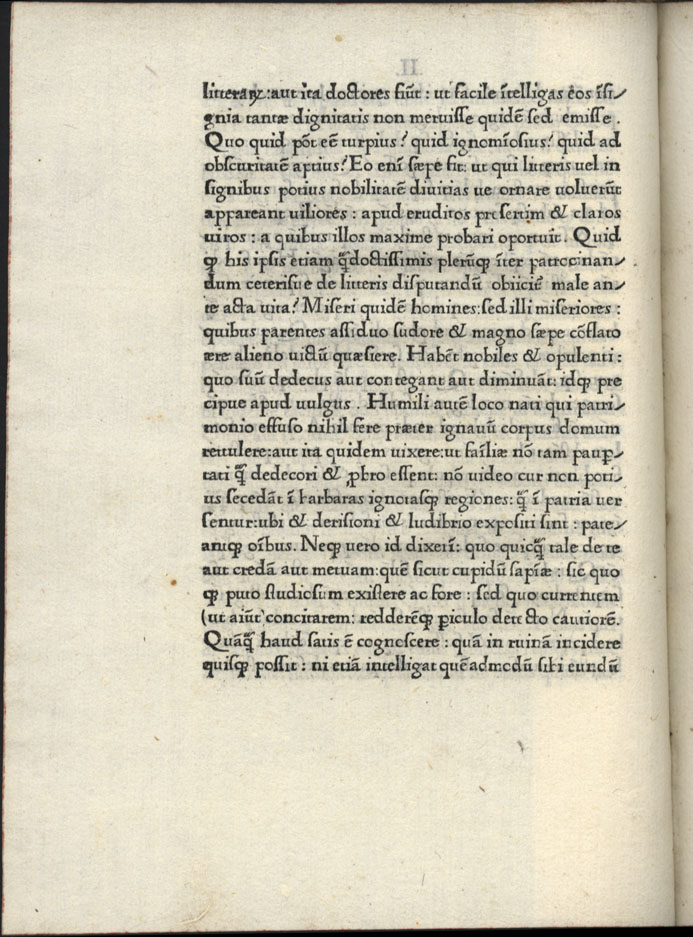 litteraꝝ:aut ita doctores fiũt : ut facile ĩtelligas eos ĩsi⸗
gnia tantæ dignitatis non meruisse quidẽ sed emisse .
Quo quid põt eẽ turpius? quid ignomĩosius? quid ad
obscuritatẽ aptius? Eo enĩ sæpe fit: ut qui litteris uel in
signibus potius nobilitatẽ diuitias ue ornare uoluerũt
appareant uiliores : apud eruditos presertim & claros
uiros : a quibus illos maxime probari oportuit. Quid
ꝙ his ipsis etiam q̃doctissimis plerũꝙ ĩter patrocinan⸗
dum ceterisue de litteris disputandũ obiiciẽ male an⸗
te acta uita? Miseri quidẽ homines:sed illi miseriores :
quibus parentes assiduo sudore & magno sæpe cõflato
ære alieno uictũ quæsiere. Habẽt nobiles & opulenti :
quo suũ dedecus aut contegant aut diminuãt: idꝙ pre
cipue apud uulgus . Humili autẽ loco nati qui patri⸗
monio effuso nihil fere præter ignauũ corpus domum
rettulere:aut ita quidem uixere:ut fañliæ nõ tam pauꝑ
tati q̃ dedecori & ꝓbro essent: nõ uideo cur non poti⸗
us secedãt ĩ barbaras ignotasꝙ regiones: q̃ ĩ patria uer
sentur:ubi & derisioni & ludibrio expositi sint : pate⸗
antꝙ oĩbus. Neꝙ uero id dixerĩ: quo quicq̃ tale de te
aut credã aut metuam:quẽ sicut cupidũ sapĩæ : sic quo
ꝙ puto studiosum existere ac fore : sed quo currentem
(ut aiũt) concitarem: redderẽꝙ ꝑiculo detecto cautiorẽ.
Quãq̃ haud satis ẽ cognoscere : quã in ruinã incidere
quisꝙ possit : ni etiã intelligat quẽadmodũ sibi eundũ